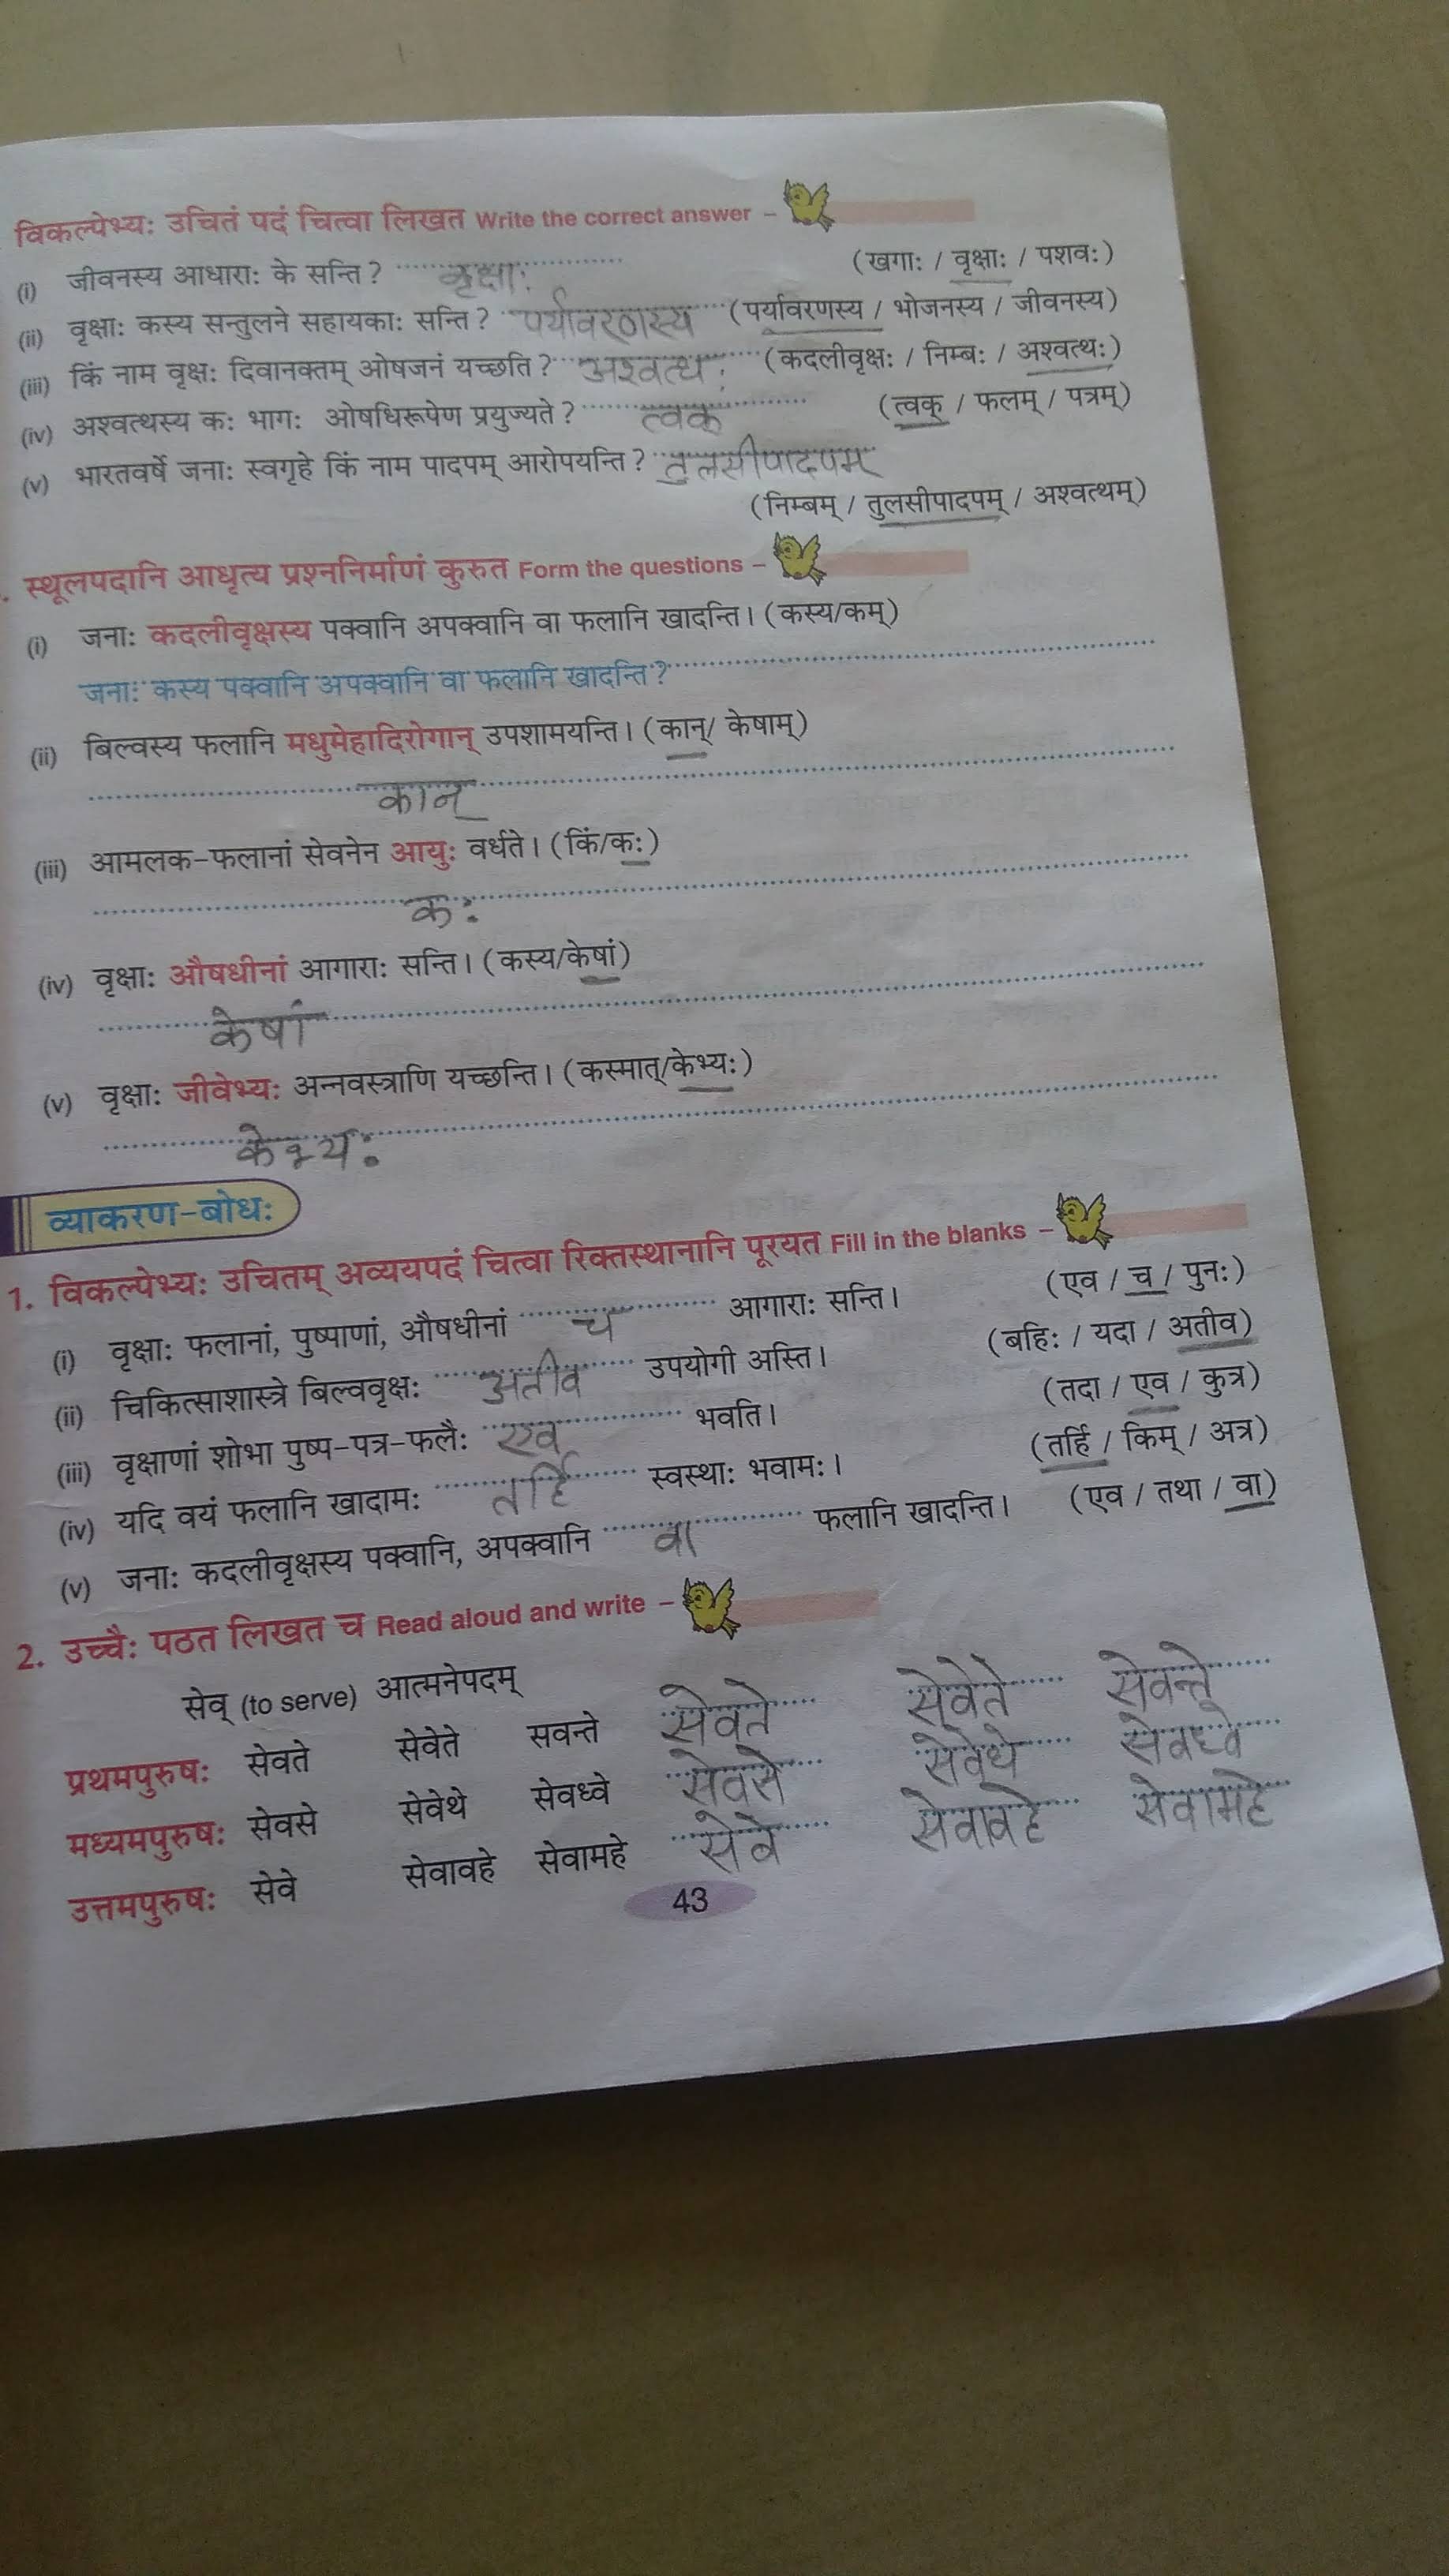 विकल्पेभ्यः उचितं पदं चित्वा लिखत Write the correct answer –
(i) जीवनस्य आधाराः के सन्ति? वृक्षाः (खगाः / वृक्षाः / पशवः)
(ii) वृक्षाः कस्य सन्तुलने सहायकाः सन्ति? पर्यावरणस्य (पर्यावरणस्य / भोजनस्य / जीवनस्य)
(iii) किं नाम वृक्षः दिवानक्तम् ओषजनं यच्छति? अश्वत्थः (कदलीवृक्षः / निम्बः / अश्वत्थः)
(iv) अश्वत्थस्य कः भागः ओषधिरूपेण प्रयुज्यते? त्वक् (त्वक् / फलम् / पत्रम्)
(v) भारतवर्षे जनाः स्वगृहे किं नाम पादपम् आरोपयन्ति? तुलसीपादपम्
(निम्बम् / तुलसीपादपम् / अश्वत्थम्)
स्थूलपदानि आधृत्य प्रश्ननिर्माणं कुरुत Form the questions –
(i) जनाः कदलीवृक्षस्य पक्वानि अपक्वानि वा फलानि खादन्ति। (कस्य/कम्)
जनाः कस्य पक्वानि अपक्वानि वा फलानि खादन्ति?
(ii) बिल्वस्य फलानि मधुमेहादिरोगान् उपशामयन्ति। (कान्/ केषाम्)
कान्
(iii) आमलक-फलानां सेवनेन आयुः वर्धते। (किं/कः)
कः
(iv) वृक्षाः औषधीनां आगाराः सन्ति। (कस्य/केषां)
केषां
(v) वृक्षाः जीवेभ्यः अन्नवस्त्राणि यच्छन्ति। (कस्मात्/केभ्यः)
केभ्यः
व्याकरण-बोधः
1. विकल्पेभ्यः उचितम् अव्ययपदं चित्वा रिक्तस्थानानि पूरयत Fill in the blanks –
(i) वृक्षाः फलानां, पुष्पाणां, औषधीनां च आगाराः सन्ति। (एव / च / पुनः)
(ii) चिकित्साशास्त्रे बिल्ववृक्षः अतीव उपयोगी अस्ति। (बहिः / यदा / अतीव)
(iii) वृक्षाणां शोभा पुष्प-पत्र-फलैः एव भवति। (तदा / एव / कुत्र)
(iv) यदि वयं फलानि खादामः तर्हि स्वस्थाः भवामः। (तर्हि / किम् / अत्र)
(v) जनाः कदलीवृक्षस्य पक्वानि, अपक्वानि वा फलानि खादन्ति। (एव / तथा / वा)
2. उच्चैः पठत लिखत च Read aloud and write –
सेव् (to serve) आत्मनेपदम्
प्रथमपुरुषः सेवते सेवेते सवन्ते सेवते सेवेते सेवन्ते
मध्यमपुरुषः सेवसे सेवेथे सेवध्वे सेवसे सेवेथे सेवध्वे
उत्तमपुरुषः सेवे सेवावहे सेवामहे सेवे सेवावहे सेवामहे
43